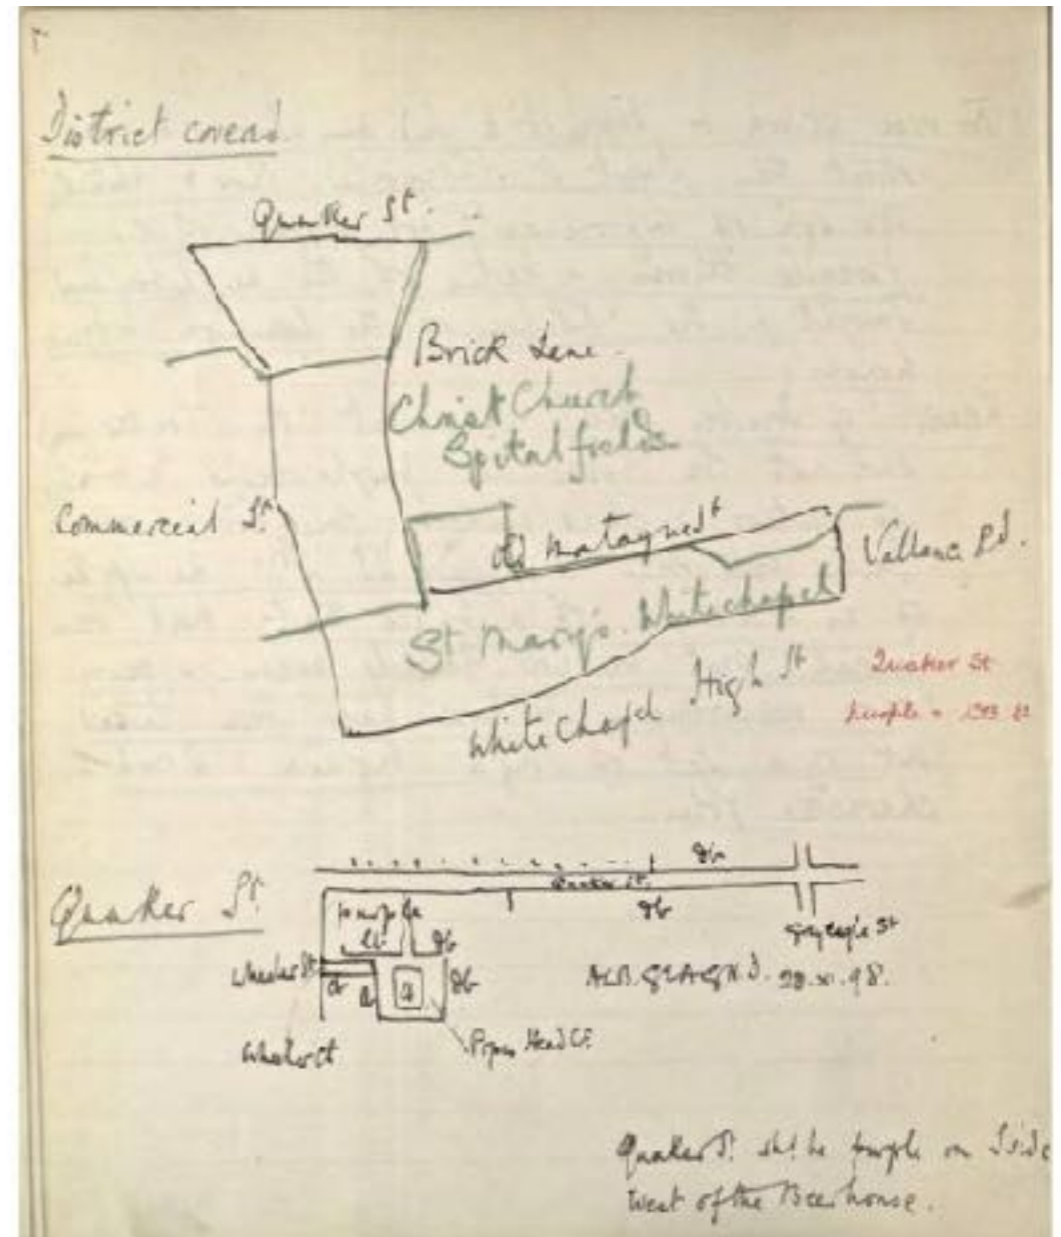 District covered
Quaker St.
Brick Lane.
Christ Church
Spitalfields
Commercial St.
Old Montague St
Vallance Rd.
St Marys. Whitechapel
White Chapel High St
Quaker St
purple =
Quaker St.
Db
Quaker St.
Db
Grey eagle St
Db
Wheeler St
Db
28.XI.98.
Wheler Ct
Popes Head Ct.
Quaker St. shd be purple on S side
West of the Beerhouse.